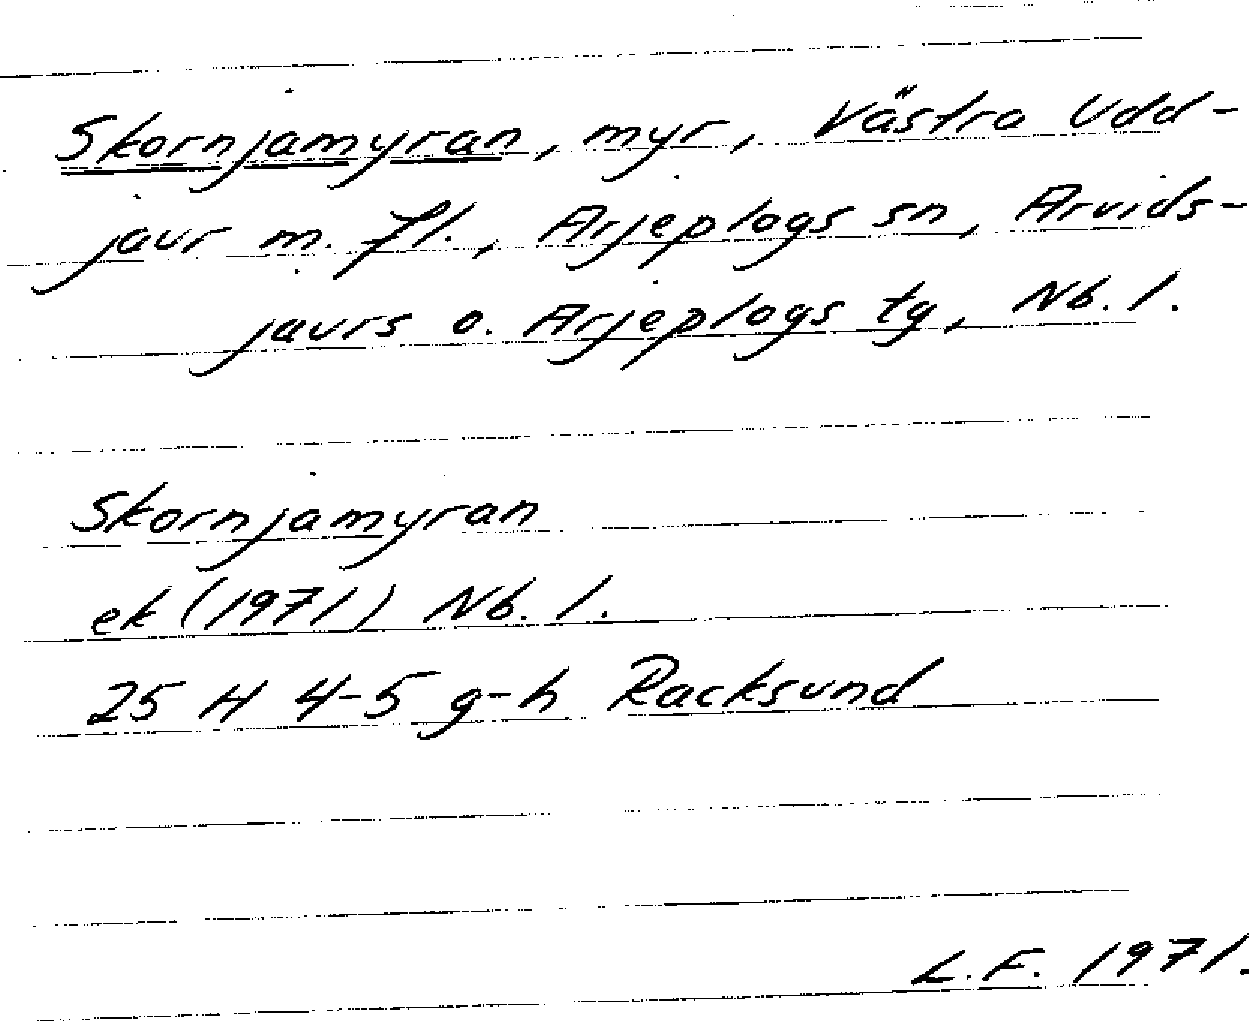 Skornjamyran, myr, Västra Udd-
jaur m. fl., Arjeplogs sn, Arvids-
jaurs o. Arjeplogs tg, Nb. l.
Skornjamyran
ek (1971) Nb. l.
25 H 4-5 g-h Racksund
L.F. 1971.